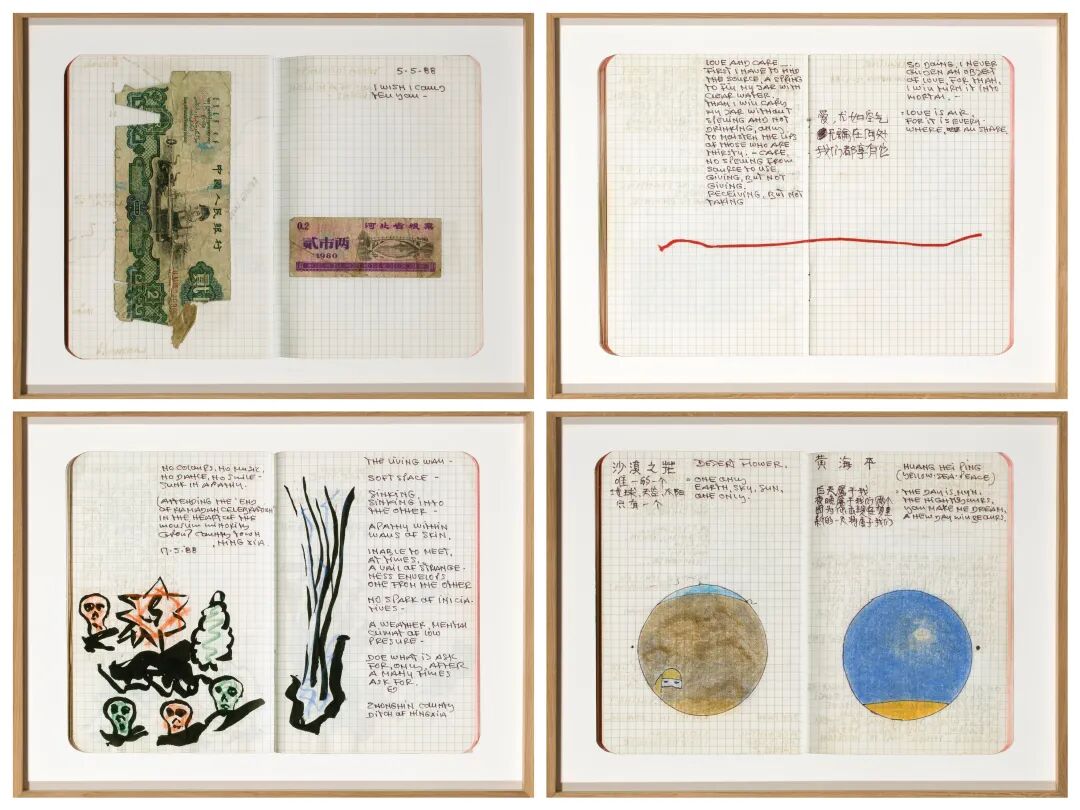 中国人民银行
5-5-88
I WISH I COULD
TELL YOU -
0.2 河北省粮票
贰市两
1980
LOVE AND CARE -.
FIRST I HAVE TO FIND
THE SOURCE, A SPRING
TO FILL MY JAR WITH
CLEAR WATER.
THAN I WILL CARY
MY JAR WITHOUT
SPEWING AND NOT
DRINKING, ONLY
TO MOISTEN THE LIPS
OF THOSE WHO ARE
THIRSTY. - CARE,
NO SPEWING FROM
SOURCE TO USE.
GIVING, BUT NOT
GIVING.
RECEIVING, BUT NOT
TAKING
爱,尤如空气
无编在何处
我们都享有它
SO DOING, I NEVER
GOLDEN AN OBJECT
OF LOVE, FOR THAN,
I WILL TURN IT INTO
MORTAL. -
- LOVE IS AIR.
FOR IT IS EVERY-
WHERE, ALL SHARE
NO COLOURS, NO MUSIC,
NO DANCE, NO SMILE -
SUNK IN APATHY.
ATTENDING THE 'END
OF RAMADAN CELEBRATION'
IN THE HEART OF THE
MOUSLIM MINORITY
GROUP COUNTY TOWN
, NING XIA.
17.5.'88
THE LIVING WALL -
SOFT SPACE -
SINKING,
SINKING INTO
THE OTHER -
APATHY WITHIN
WALLS OF SKIN.
INABLE TO MEET,
AT TIMES,
A VAIL OF STRANGE-
NESS ENVELOPS
ONE FROM THE OTHER
NO SPARK OF INICIA-
TIVES -
A WEATHER, MENTAL
CLIMAT OF LOW
PRESURE -
DOE WHAT IS ASK
FOR, ONLY, AFTER
A MANY TIMES
ASK FOR.
ZHONGNIN COUNTY
DITCH OF NINGXIA
沙漠之花
唯一的一个
地球,天空,太阳
只有一个
DESERT FLOWER.
- ONE ONLY
EARTH, SKY, SUN,
ONE ONLY.
黄海平
白天属于我
夜晚属于我们两个
HUANG HEI PING
(YELLOW·SEA·PEACE)
- THE DAY IS MYN.
THE NIGHT IS OURS,
YOU MAKE ME DREAM,
A NEW DAY WILL BE OURS.